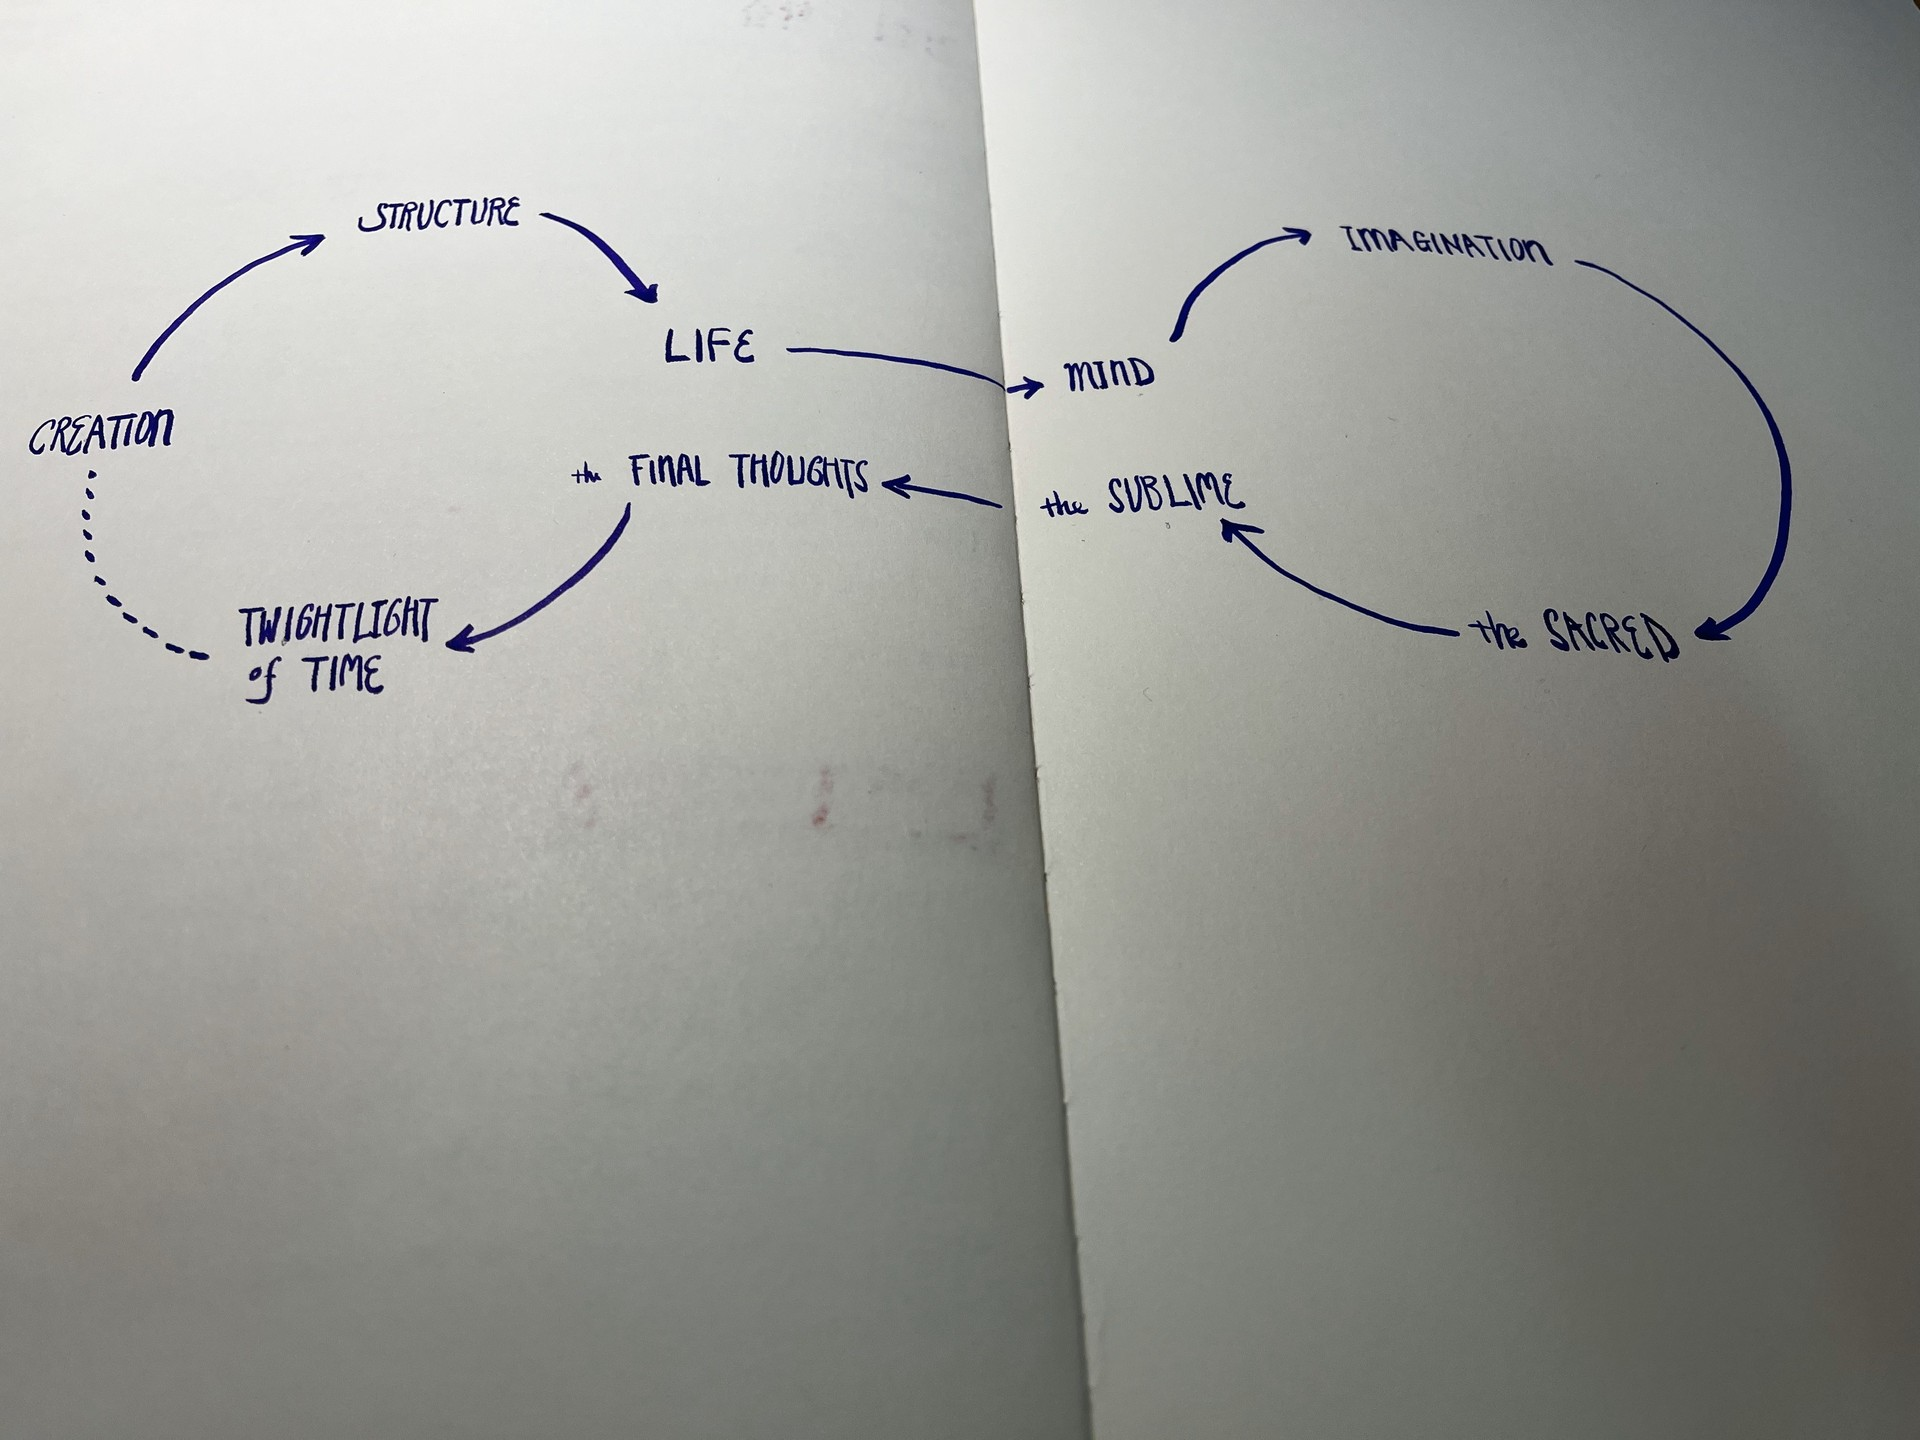 STRUCTURE
LIFE
CREATION
the FINAL THOUGHTS
TWIGHTLIGHT
of TIME
IMAGINATION
MIND
the SUBLIME
the SACRED